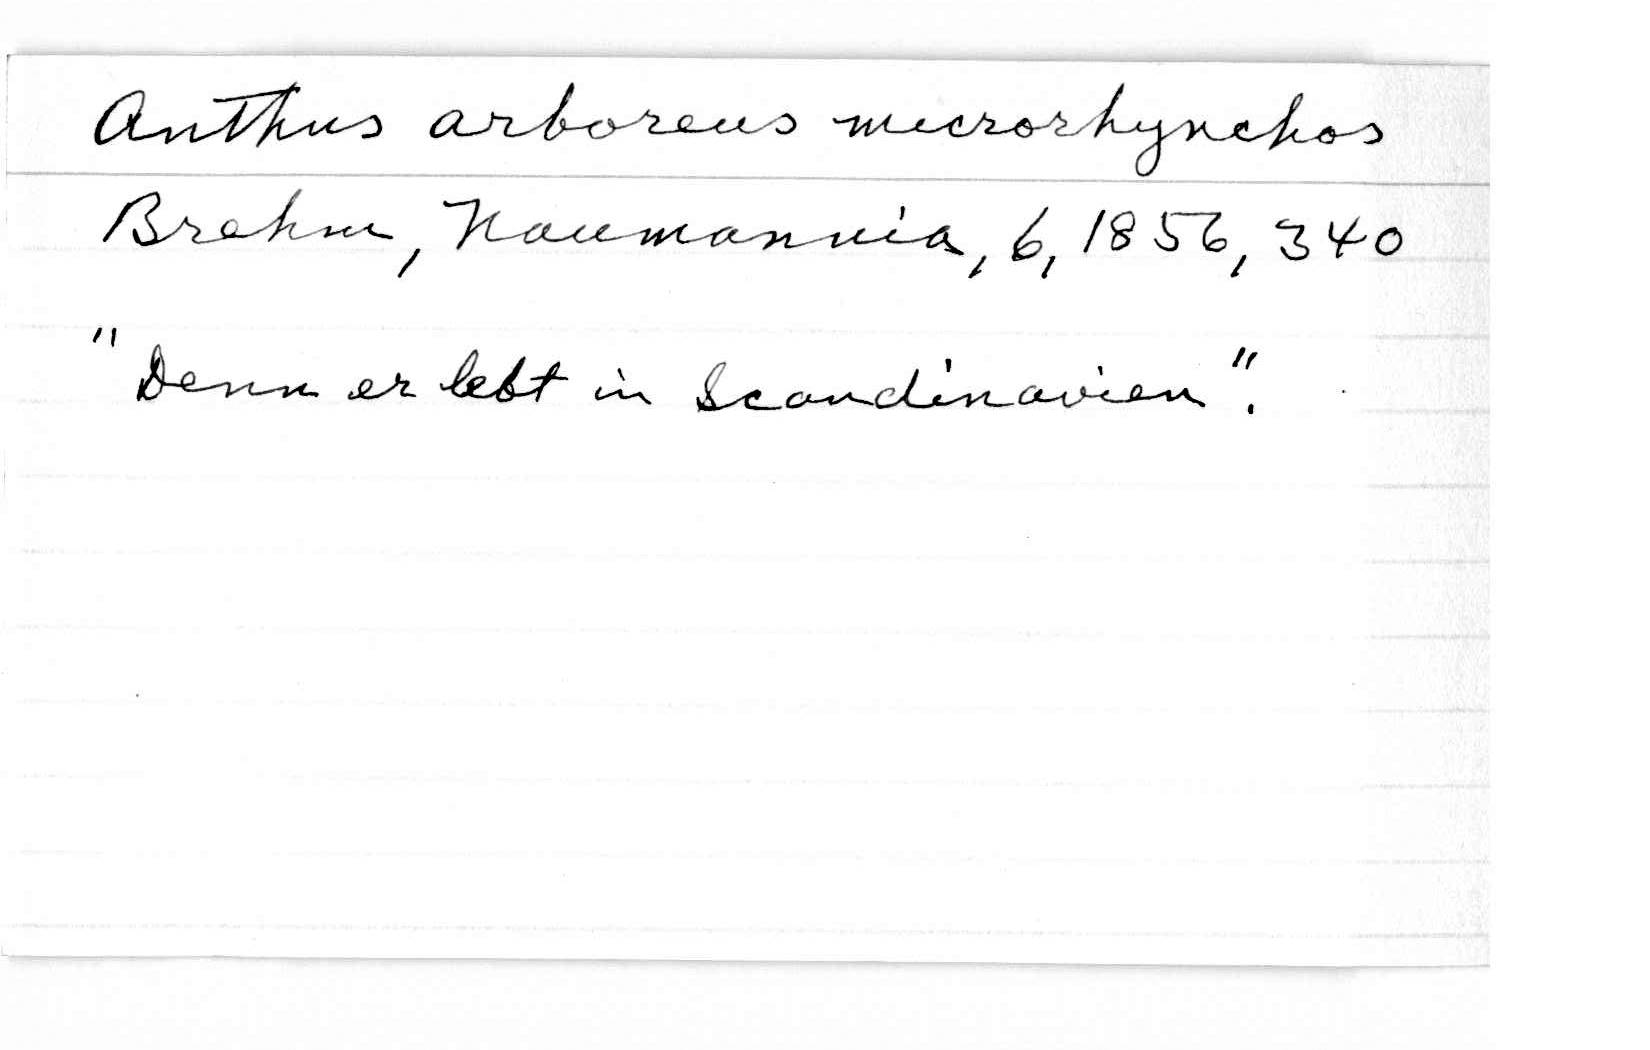 Anthus arboreus microrhynchos
Brehm, Naumannia, 6, 1856, 340
"Denn er lebt in Scandinavien".